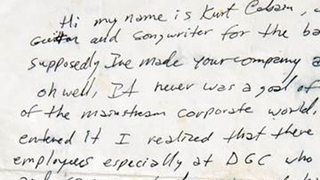 Hi my name is Kurt Cobain,
and Songwriter for the ba
supposedly Ive made your company a
oh well, It never was a goal of
of the mainstream corporate world,
entered it I realized that there
employees especially at DGC who